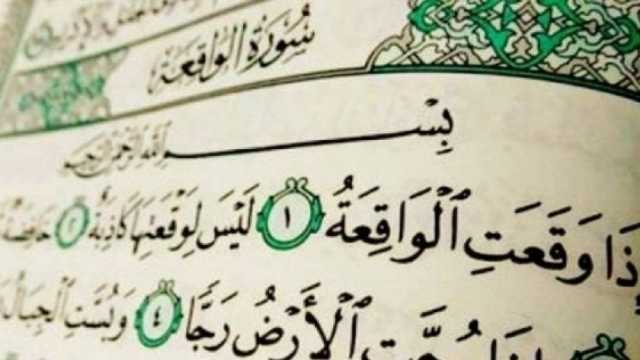 سُورَةُ الوَاقِعَةِ
بِسْمِ اللَّهِ الرَّحْمَٰنِ الرَّحِيمِ
ذَا وَقَعَتِ ٱلْوَاقِعَةُ ١ لَيْسَ لِوَقْعَتِهَا كَاذِبَةٌ ٢ خَافِضَةٌ
رُجَّتِ ٱلْأَرْضُ رَجًّا ٤ وَبُسَّتِ ٱلْجِبَالُ